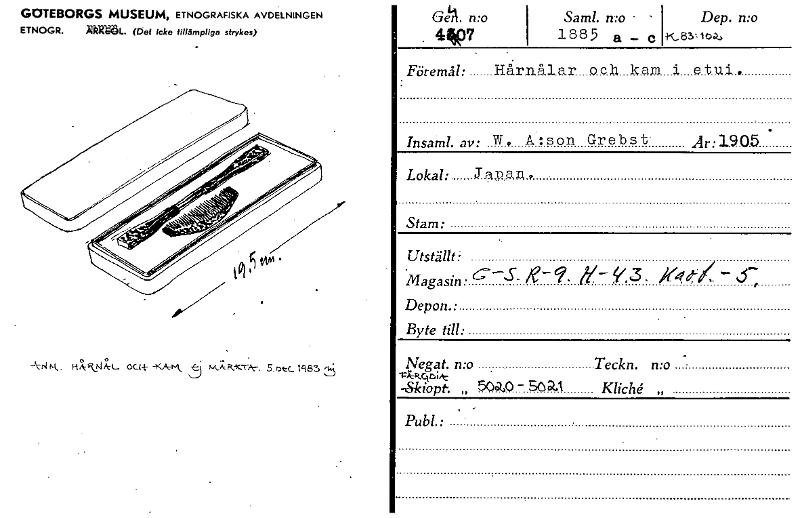 GÖTEBORGS MUSEUM, ETNOGRAFISKA AVDELNINGEN
ETNOGR. ARKEOL. (Det icke tillämpliga strykes)
19,5 cm.
ANM. HÅRNÅL OCH KAM EJ MÄRKTA. 5.DEC 1983
Gen. n:o Saml. n:o Dep. n:o
1885 a - c K 83:102
Föremål: Hårnålar och kam i etui.
Insaml. av: W. A:son Grebst År: 1905
Lokal: Japan.
Stam:
Utställt:
Magasin: G-S. R-9. H-43. Kart. - 5.
Depon.:
Byte till:
Negat. n:o Teckn. n:o
FÄRGDIA
Skiopt. „ 5020-5021 Kliché „
Publ.: